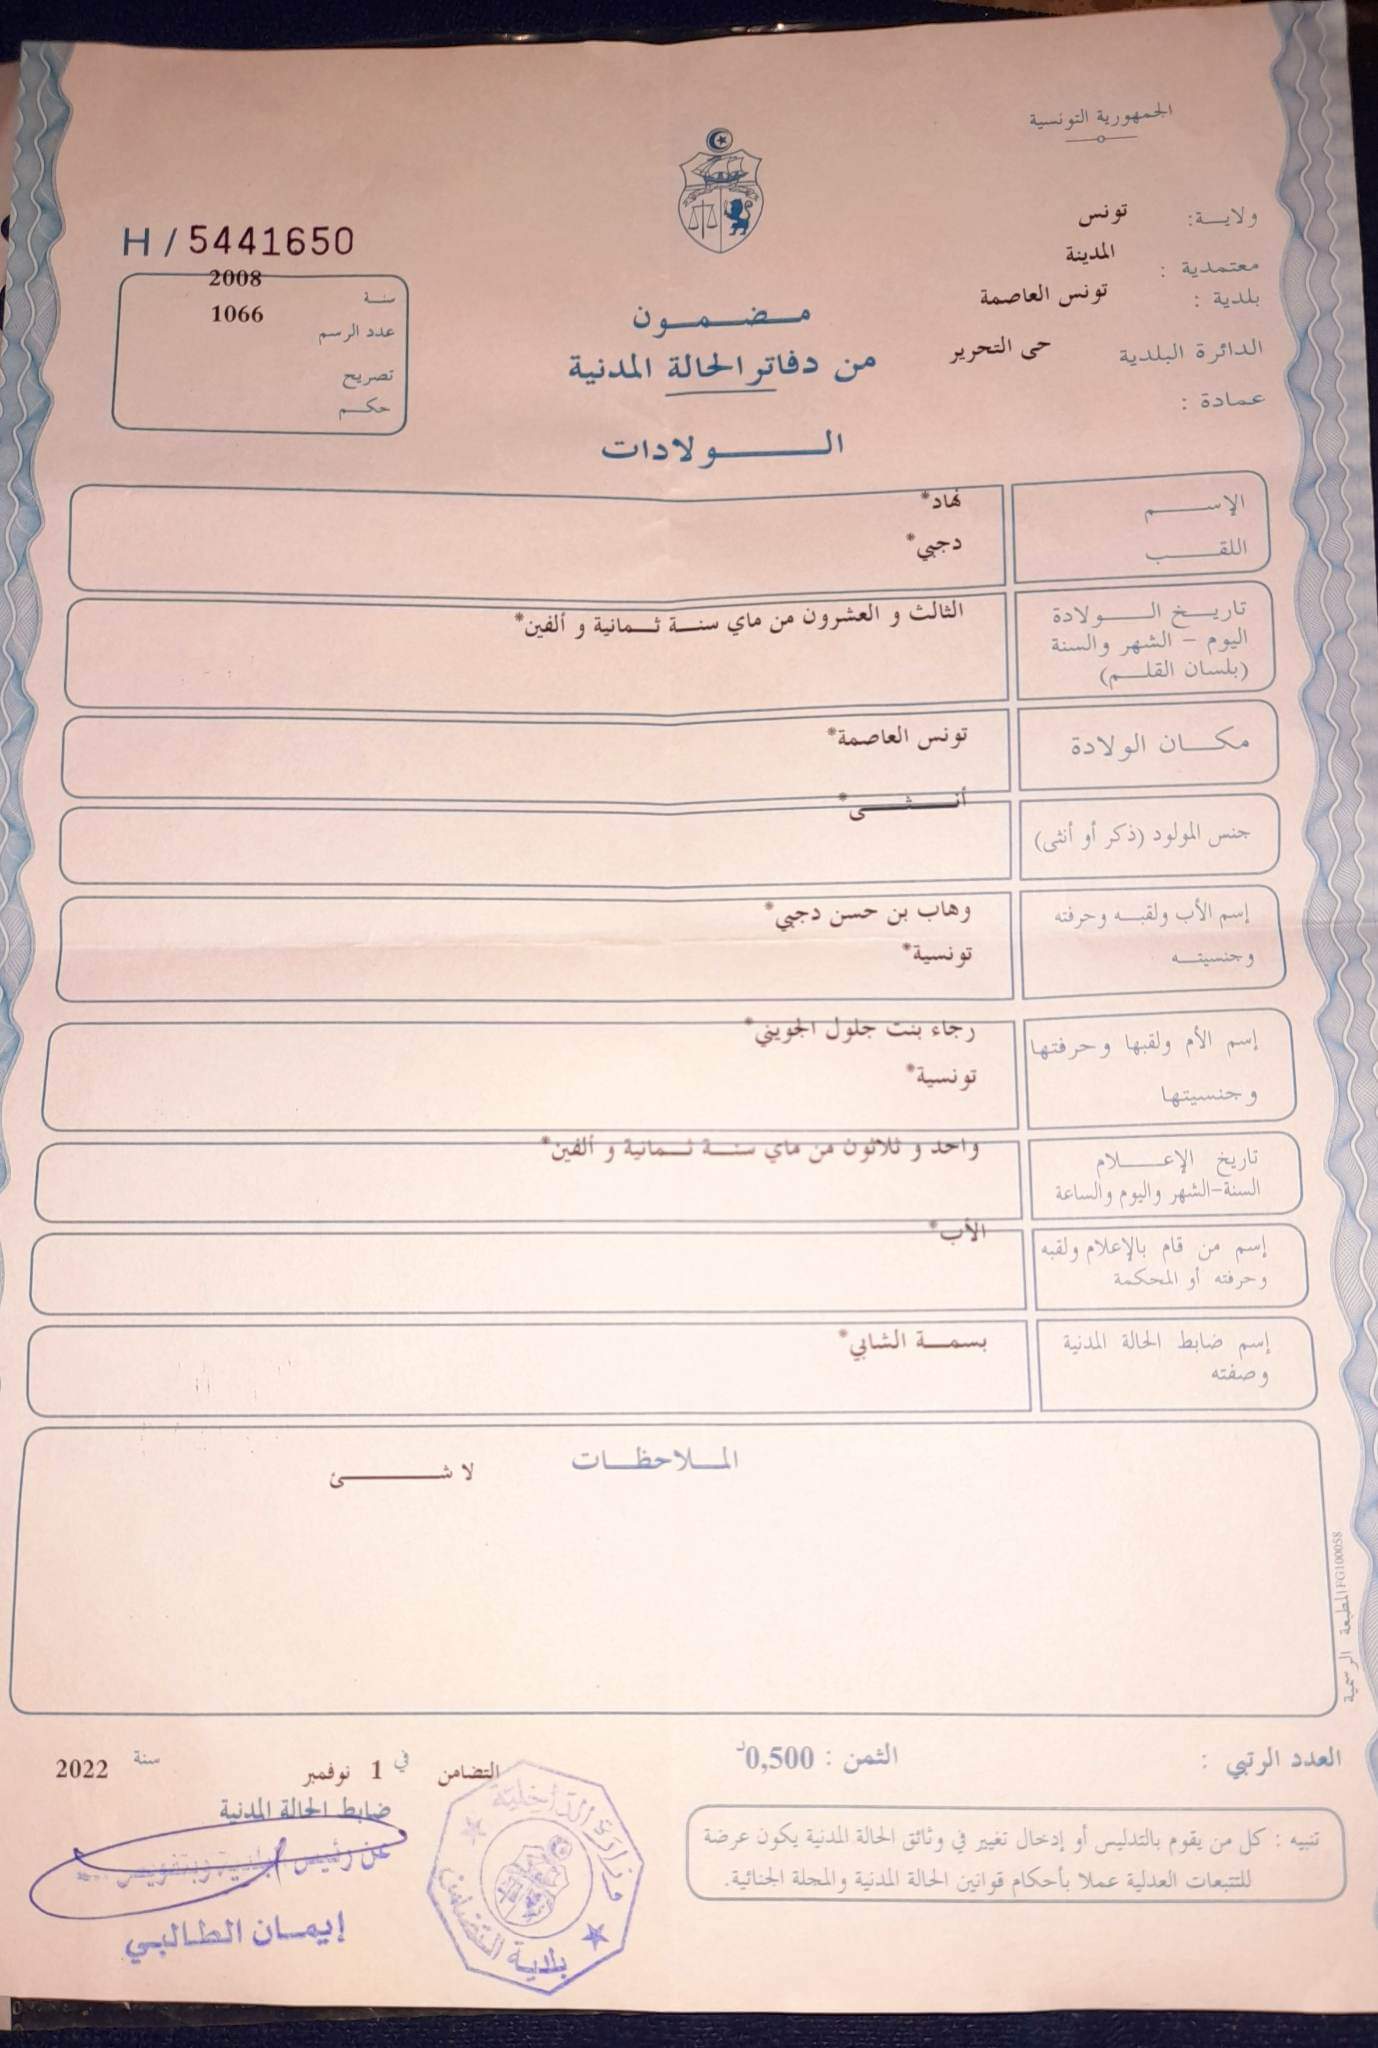 الجمهورية التونسية
ولايـــة: تونس
معتمدية : المدينة
بلدية : تونس العاصمة
الدائرة البلدية حى التحرير
عمادة :
H / 5441650
سنة 2008
عدد الرسم 1066
تصريح
حكـم
مـضـمـون
من دفاتر الحالة المدنية
الـــولادات
الإســـم نهاد*
اللقـــب دجبي*
تاريـخ الـــولادة الثالث و العشرون من ماي سنـة ثـمانية و ألفين*
اليوم - الشهر والسنة
(بلسان القلـم)
مكـان الولادة تونس العاصمة*
جنس المولود (ذكر أو أنثى) أنــثــى*
إسم الأب ولقبـه وحرفته وهاب بن حسن دجبي*
وجنسيتـه تونسية*
إسم الأم ولقبها وحرفتها رجاء بنت جلول الجويني*
وجنسيتها تونسية*
تاريخ الإعـــلام واحد و ثلاثون من ماي سنـة ثـمانية و ألفين*
السنة-الشهر واليوم والساعة
إسم من قام بالإعلام ولقبه الأب*
وحرفته أو المحكمة
إسم ضابط الحالة المدنية بسمـة الشابي*
وصفته
المـلاحظـات
لا شـــئ
المطبعة الرسمية FG100058
العدد الرتبي :
الثمن : 0,500د
التضامن في 1 نوفمبر سنة 2022
ضابط الحالة المدنية
عن رئيس البلدية وبتفويض
إيمـان الطـالبـي
وزارة الداخلية
بلدية التضامن
تنبيه : كل من يقوم بالتدليس أو إدخال تغيير في وثائق الحالة المدنية يكون عرضة
للتتبعات العدلية عملا بأحكام قوانين الحالة المدنية والمجلة الجنائية.